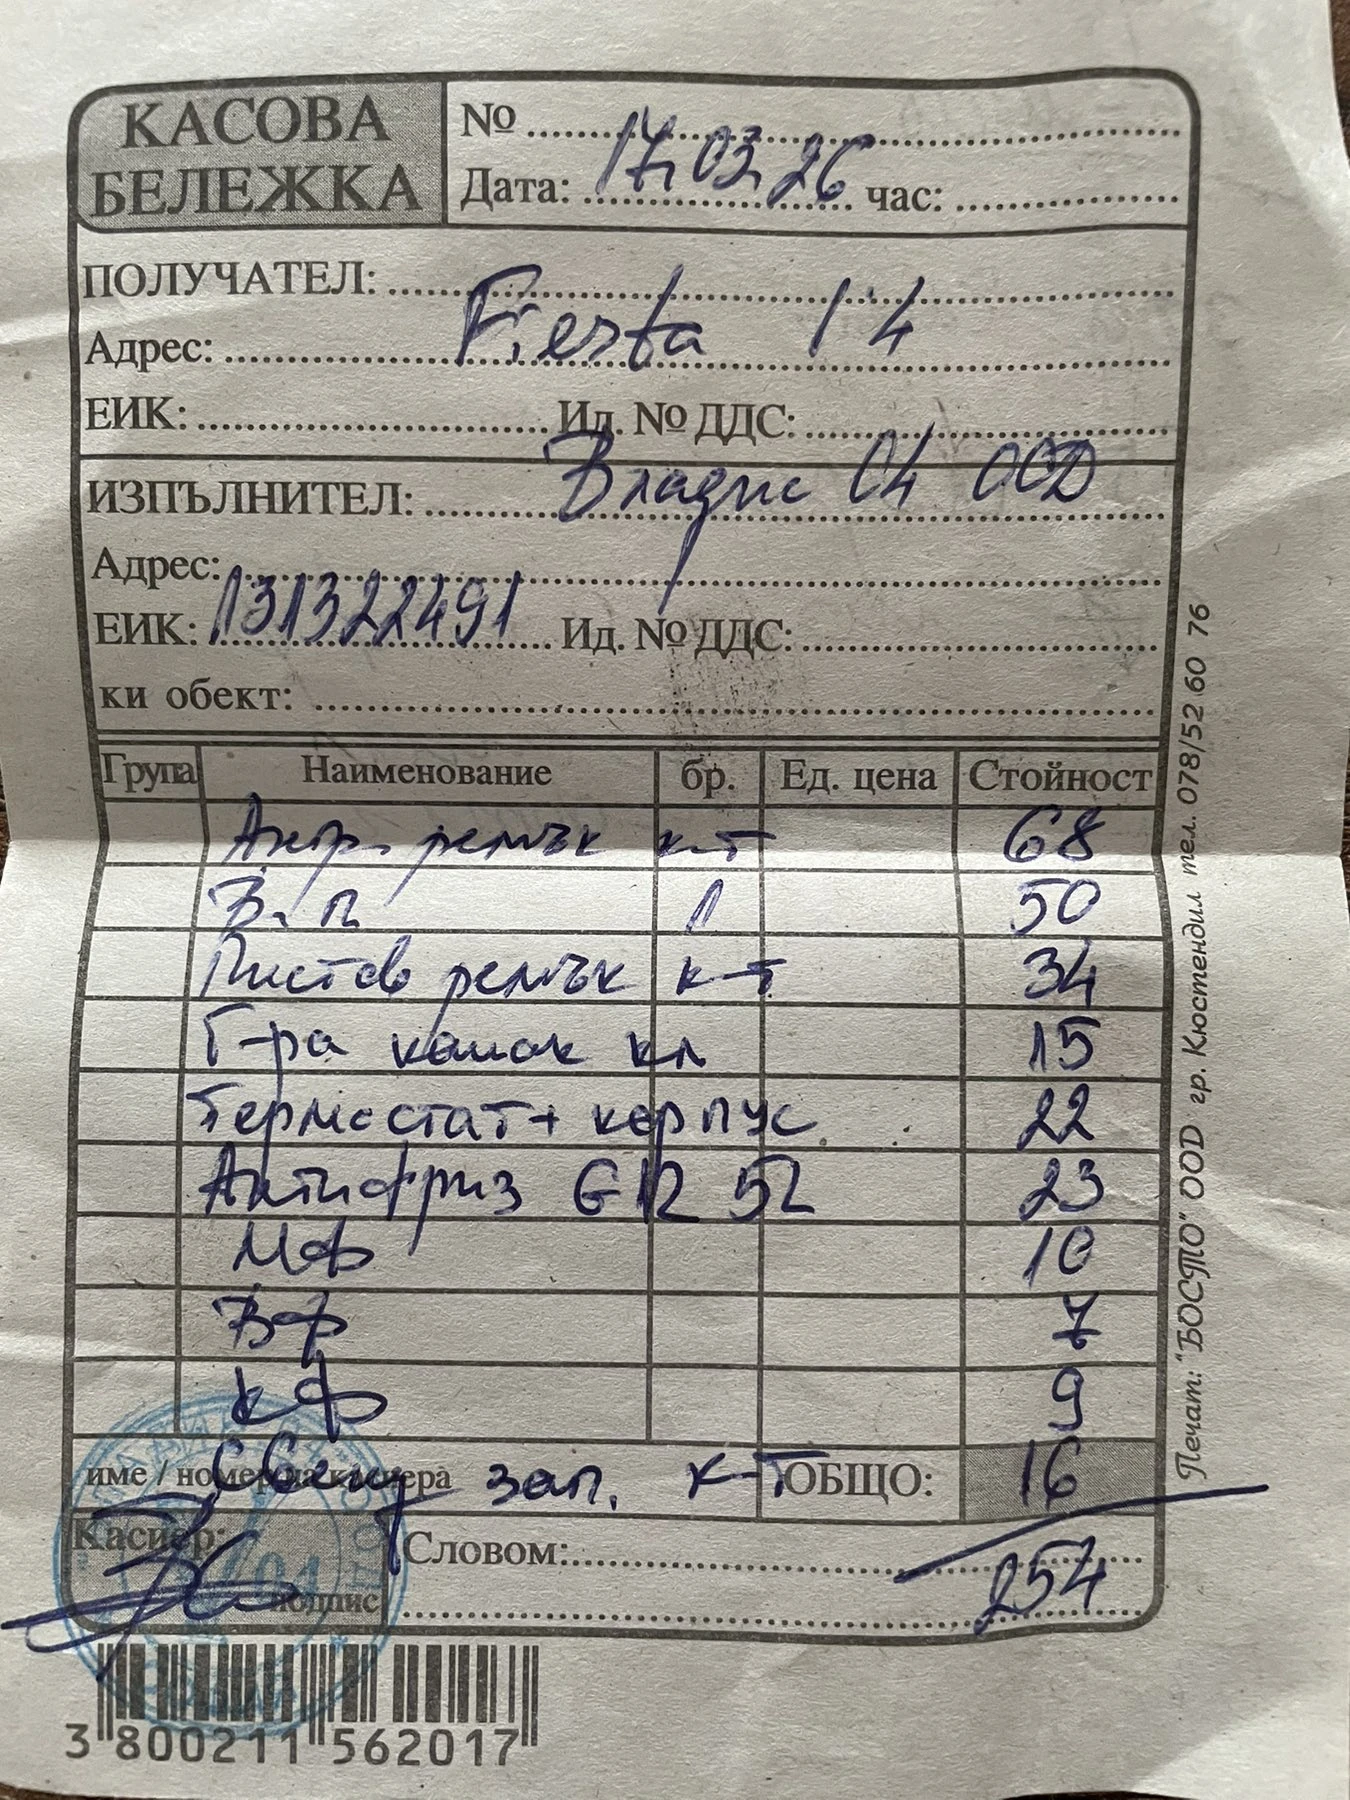 КАСОВА БЕЛЕЖКА
№
Дата: 17.03.26 час:
ПОЛУЧАТЕЛ:
Адрес: Fiesta 1.4
ЕИК: Ид. № ДДС:
ИЗПЪЛНИТЕЛ: Владис 04 ООД
Адрес:
ЕИК: 131322491 Ид. № ДДС:
ки обект:
Група Наименование бр. Ед. цена Стойност
Ангр. ремък к-т 68
В.п 1 50
Пистов ремък к-т 34
Г-ра капак кл 15
Термостат + корпус 22
Антифриз G12 5L 23
МФ 10
ВФ 7
КФ 9
име / номер на касиера ОБЩО:
Свещ зап. к-т 16
Касиер: Словом:
254
подпис
3 800211 562017
Печат: "БОСТО" ООД гр. Кюстендил тел. 078/52 60 76